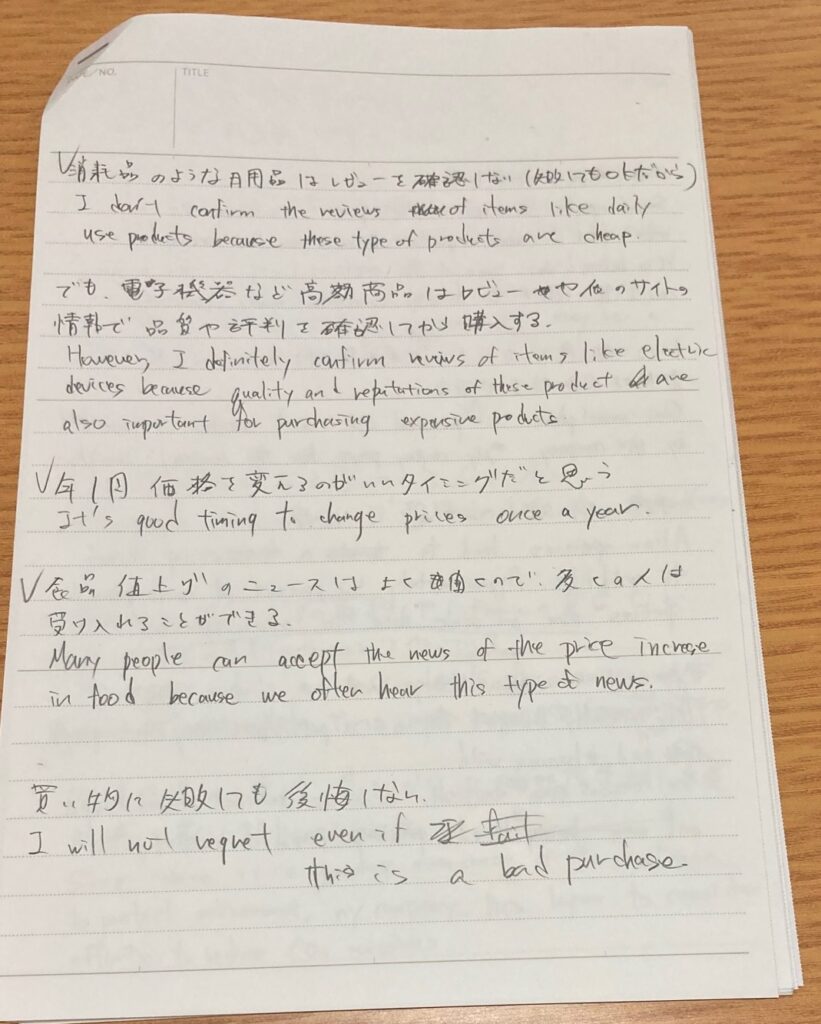 /NO. TITLE
✓消耗品のような日用品はレビューを確認しない(失敗してもOKだから)
I don't confirm the reviews of items like daily
use products because these type of products are cheap.
でも、電子機器など高額商品はレビューや他のサイトの
情報で品質や評判を確認してから購入する.
However, I definitely confirm reviews of items like electric
devices because quality and reputations of these product are
also important for purchasing expensive products
✓年1回 価格を変えるのがいいタイミングだと思う
It's good timing to change prices once a year.
✓食品値上げのニュースはよく聞くので、多くの人は
受け入れることができる.
Many people can accept the news of the price increse
in food because we often hear this type of news.
買い物に失敗しても後悔しない.
I will not regret even if
this is a bad purchase.